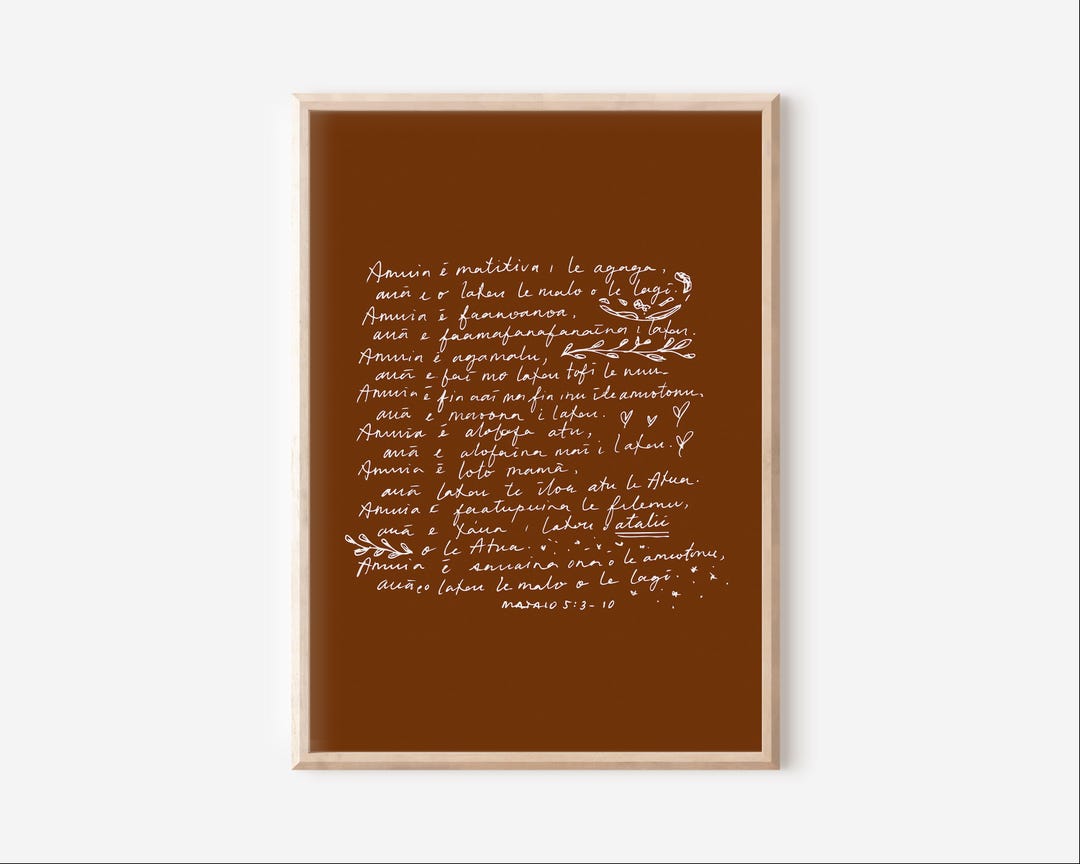 Amuia ē matitiva i le agaga,
auā e o latou le malo o le lagi.
Amuia ē faanoanoa,
auā e faamafanafanaīna i latou.
Amuia ē agamalu,
auā e fai mo latou tofi le nuu.
Amuia ē fia aai ma fia inu i le amiotonu,
auā e maoona i latou.
Amuia ē alofafa atu,
auā e alofaina mai i latou.
Amuia ē loto mamā,
auā latou te iloa atu le Atua.
Amuia ē faatupuina le filemu,
auā e taua i latou o atalii
o le Atua.
Amuia ē sauaina ona o le amiotonu,
auā e o latou le malo o le lagi.
MATAIO 5:3-10